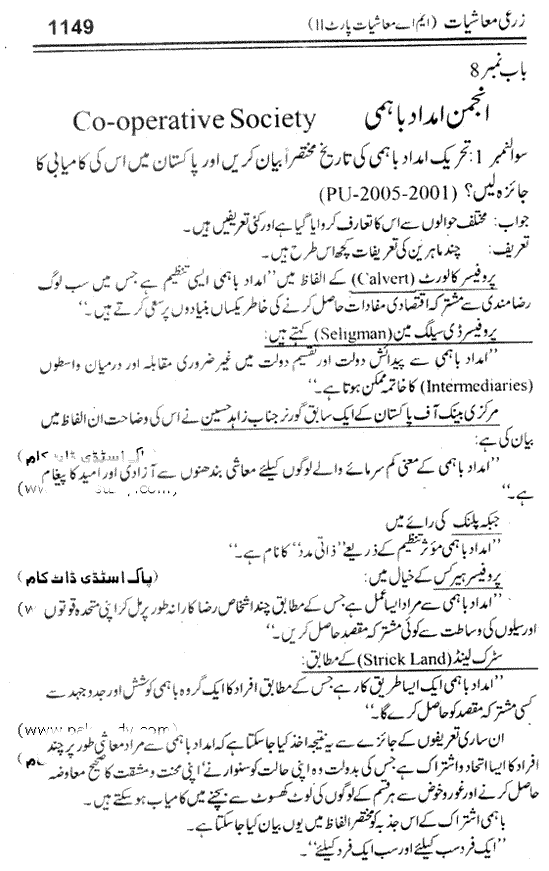 زرعی معاشیات (ایم اے معاشیات پارٹ II) 1149
باب نمبر 8
انجمن امداد باہمی Co-operative Society
سوالنمبر 1: تحریک امداد باہمی کی تاریخ مختصراً بیان کریں اور پاکستان میں اس کی کامیابی کا
جائزہ لیں؟ (PU-2005-2001)
جواب: مختلف حوالوں سے اس کا تعارف کروایا گیا ہے اور کئی تعریفیں ہیں۔
تعریف: چند ماہرین کی تعریفات کچھ اس طرح ہیں۔
پروفیسر کالورٹ (Calvert) کے الفاظ میں ”امداد باہمی ایسی تنظیم ہے جس میں سب لوگ
رضامندی سے مشترکہ اقتصادی مفادات حاصل کرنے کی خاطر یکساں بنیادوں پر سعی کرتے ہیں۔“
پروفیسر ڈی سیلگ مین (Seligman) کہتے ہیں:
”امداد باہمی سے پیدائش دولت اور تقسیم دولت میں غیر ضروری مقابلہ اور درمیان واسطوں
(Intermediaries) کا خاتمہ ممکن ہوتا ہے۔“
مرکزی بینک آف پاکستان کے ایک سابق گورنر جناب زاہد حسین نے اس کی وضاحت ان الفاظ میں
بیان کی ہے:
”امداد باہمی کے معنی کم سرمائے والے لوگوں کیلئے معاشی بندھنوں سے آزادی اور امید کا پیغام
ہے۔“
جبکہ پلنک کی رائے میں
”امداد باہمی مؤثر تنظیم کے ذریعے ”ذاتی مدد“ کا نام ہے۔“
پروفیسر ہیرکس کے خیال میں: (پاک اسٹڈی ڈاٹ کام)
”امداد باہمی سے مراد ایسا عمل ہے جس کے مطابق چند اشخاص رضاکارانہ طور پر مل کر اپنی متحدہ قوتوں
اور سیلوں کی وساطت سے کوئی مشترکہ مقصد حاصل کریں۔“
سٹرک لینڈ (Strick Land) کے مطابق:
”امداد باہمی ایک ایسا طریق کار ہے جس کے مطابق افراد کا ایک گروہ باہمی کوشش اور جدوجہد سے
کسی مشترکہ مقصد کو حاصل کرے گا۔“
ان ساری تعریفوں کے جائزے سے یہ نتیجہ اخذ کیا جا سکتا ہے کہ امداد باہمی سے مراد معاشی طور پر چند
افراد کا ایسا اتحاد و اشتراک ہے جس کی بدولت وہ اپنی حالت کو سنوارنے، اپنی محنت و مشقت کا صحیح معاوضہ
حاصل کرنے اور غور و خوض سے ہر قسم کے لوگوں کی لوٹ کھسوٹ سے بچنے میں کامیاب ہو سکتے ہیں۔
باہمی اشتراک کے اس جذبہ کو مختصر الفاظ میں یوں بیان کیا جا سکتا ہے۔
”ایک فرد سب کیلئے اور سب ایک فرد کیلئے“۔